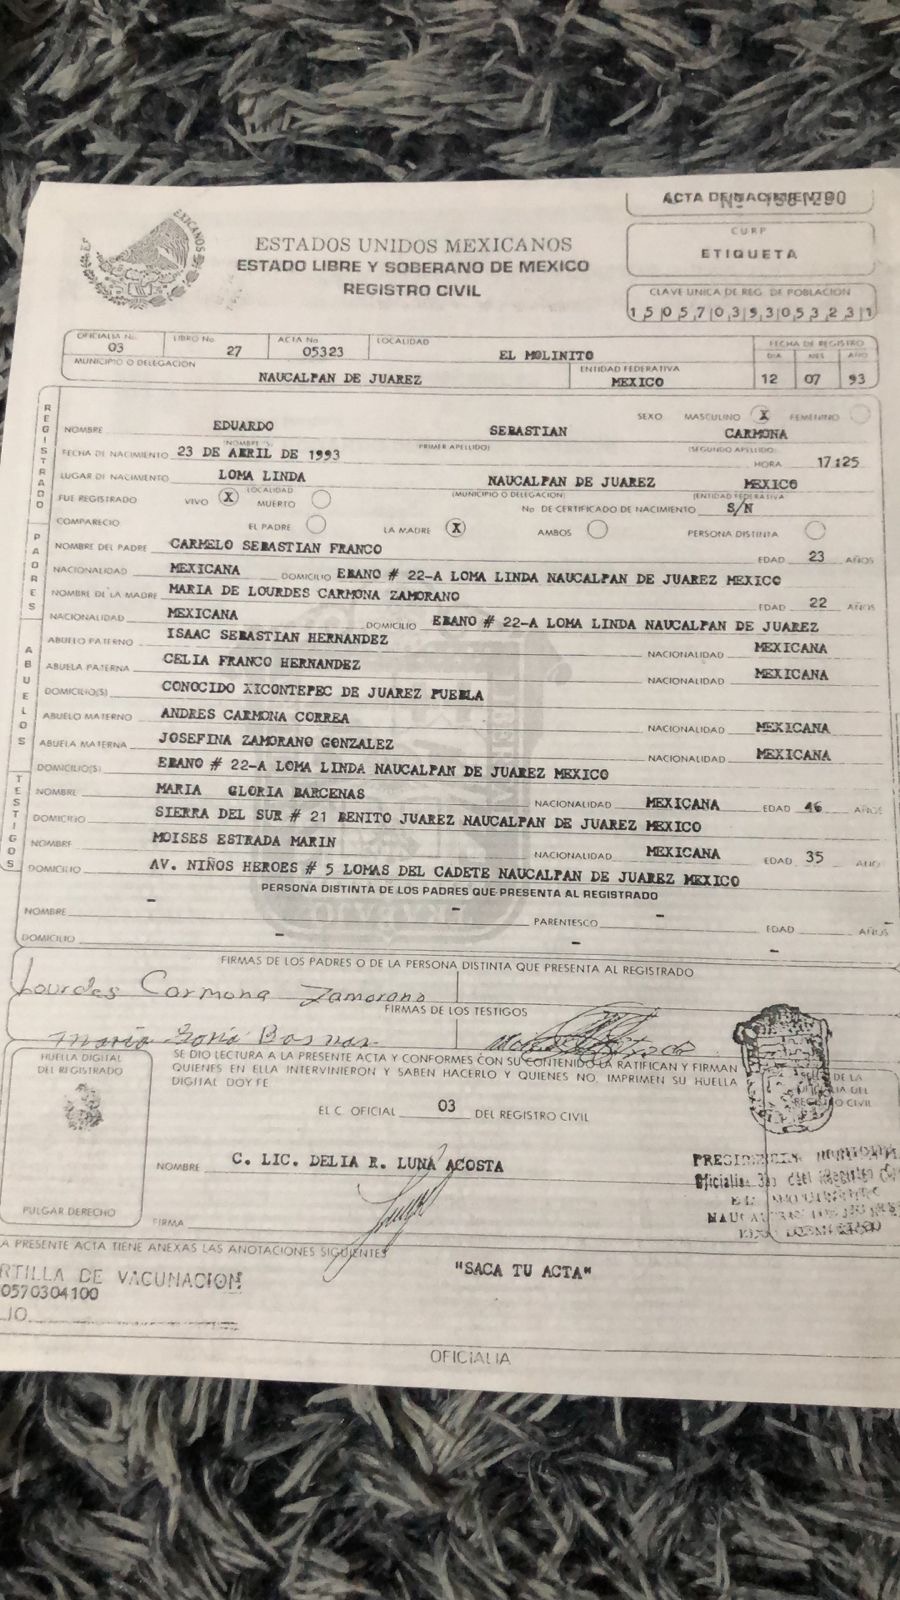 ACTA DE NACIMIENTO
CURP
ETIQUETA
ESTADOS UNIDOS MEXICANOS
ESTADO LIBRE Y SOBERANO DE MEXICO
REGISTRO CIVIL
CLAVE UNICA DE REG. DE POBLACION
150570393053231
OFICIALIA No. 03 LIBRO No. 27 ACTA No. 05323 LOCALIDAD EL MOLINITO FECHA DE REGISTRO
MUNICIPIO O DELEGACION NAUCALPAN DE JUAREZ ENTIDAD FEDERATIVA MEXICO DIA 12 MES 07 AÑO 93
REGISTRADO
SEXO MASCULINO X FEMENINO
NOMBRE EDUARDO SEBASTIAN CARMONA
NOMBRE(S) (PRIMER APELLIDO) (SEGUNDO APELLIDO)
FECHA DE NACIMIENTO 23 DE ABRIL DE 1993 HORA 17:25
LUGAR DE NACIMIENTO LOMA LINDA NAUCALPAN DE JUAREZ MEXICO
LOCALIDAD (MUNICIPIO O DELEGACION) (ENTIDAD FEDERATIVA)
FUE REGISTRADO VIVO X MUERTO No DE CERTIFICADO DE NACIMIENTO S/N
COMPARECIO EL PADRE LA MADRE X AMBOS PERSONA DISTINTA
PADRES
NOMBRE DEL PADRE CARMELO SEBASTIAN FRANCO EDAD 23 AÑOS
NACIONALIDAD MEXICANA DOMICILIO EBANO # 22-A LOMA LINDA NAUCALPAN DE JUAREZ MEXICO
NOMBRE DE LA MADRE MARIA DE LOURDES CARMONA ZAMORANO EDAD 22 AÑOS
NACIONALIDAD MEXICANA DOMICILIO EBANO # 22-A LOMA LINDA NAUCALPAN DE JUAREZ
ABUELOS
ABUELO PATERNO ISAAC SEBASTIAN HERNANDEZ NACIONALIDAD MEXICANA
ABUELA PATERNA CELIA FRANCO HERNANDEZ NACIONALIDAD MEXICANA
DOMICILIO(S) CONOCIDO XICONTEPEC DE JUAREZ PUEBLA
ABUELO MATERNO ANDRES CARMONA CORREA NACIONALIDAD MEXICANA
ABUELA MATERNA JOSEFINA ZAMORANO GONZALEZ NACIONALIDAD MEXICANA
DOMICILIO(S) EBANO # 22-A LOMA LINDA NAUCALPAN DE JUAREZ MEXICO
TESTIGOS
NOMBRE MARIA GLORIA BARCENAS NACIONALIDAD MEXICANA EDAD 46 AÑOS
DOMICILIO SIERRA DEL SUR # 21 BENITO JUAREZ NAUCALPAN DE JUAREZ MEXICO
NOMBRE MOISES ESTRADA MARIN NACIONALIDAD MEXICANA EDAD 35 AÑOS
DOMICILIO AV. NIÑOS HEROES # 5 LOMAS DEL CADETE NAUCALPAN DE JUAREZ MEXICO
PERSONA DISTINTA DE LOS PADRES QUE PRESENTA AL REGISTRADO
NOMBRE - - PARENTESCO - EDAD - AÑOS
DOMICILIO - - -
FIRMAS DE LOS PADRES O DE LA PERSONA DISTINTA QUE PRESENTA AL REGISTRADO
Lourdes Carmona Zamorano
FIRMAS DE LOS TESTIGOS
HUELLA DIGITAL
DEL REGISTRADO
SE DIO LECTURA A LA PRESENTE ACTA Y CONFORMES CON SU CONTENIDO LA RATIFICAN Y FIRMAN
QUIENES EN ELLA INTERVINIERON Y SABEN HACERLO Y QUIENES NO, IMPRIMEN SU HUELLA
DIGITAL DOY FE
DE LA
DEL
REGISTRO CIVIL
EL C. OFICIAL 03 DEL REGISTRO CIVIL
NOMBRE C. LIC. DELIA R. LUNA ACOSTA
PULGAR DERECHO
FIRMA
A PRESENTE ACTA TIENE ANEXAS LAS ANOTACIONES SIGUIENTES
RTILLA DE VACUNACION
0570304100
"SACA TU ACTA"
OFICIALIA